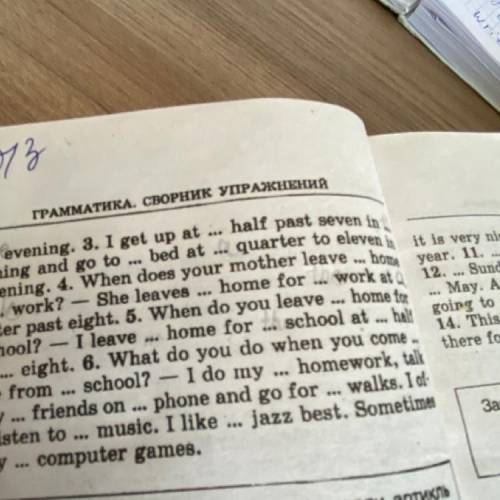 ГРАММАТИКА. СБОРНИК УПРАЖНЕНИЙ
evening. 3. I get up at ... half past seven in
and go to ... bed at ... quarter to eleven in
4. When does your mother leave ... home
work? — She leaves ... home for ... work at
past eight. 5. When do you leave ... home for
I leave ... home for ... school at ... half
... eight. 6. What do you do when you come ..
from ... school? — I do my ... homework, talk
... friends on ... phone and go for ... walks. I
to ... music. I like ... jazz best. Sometimes
... computer games.
it is very
year. 11. ...
12. ...
... May.
going to
14. This
there